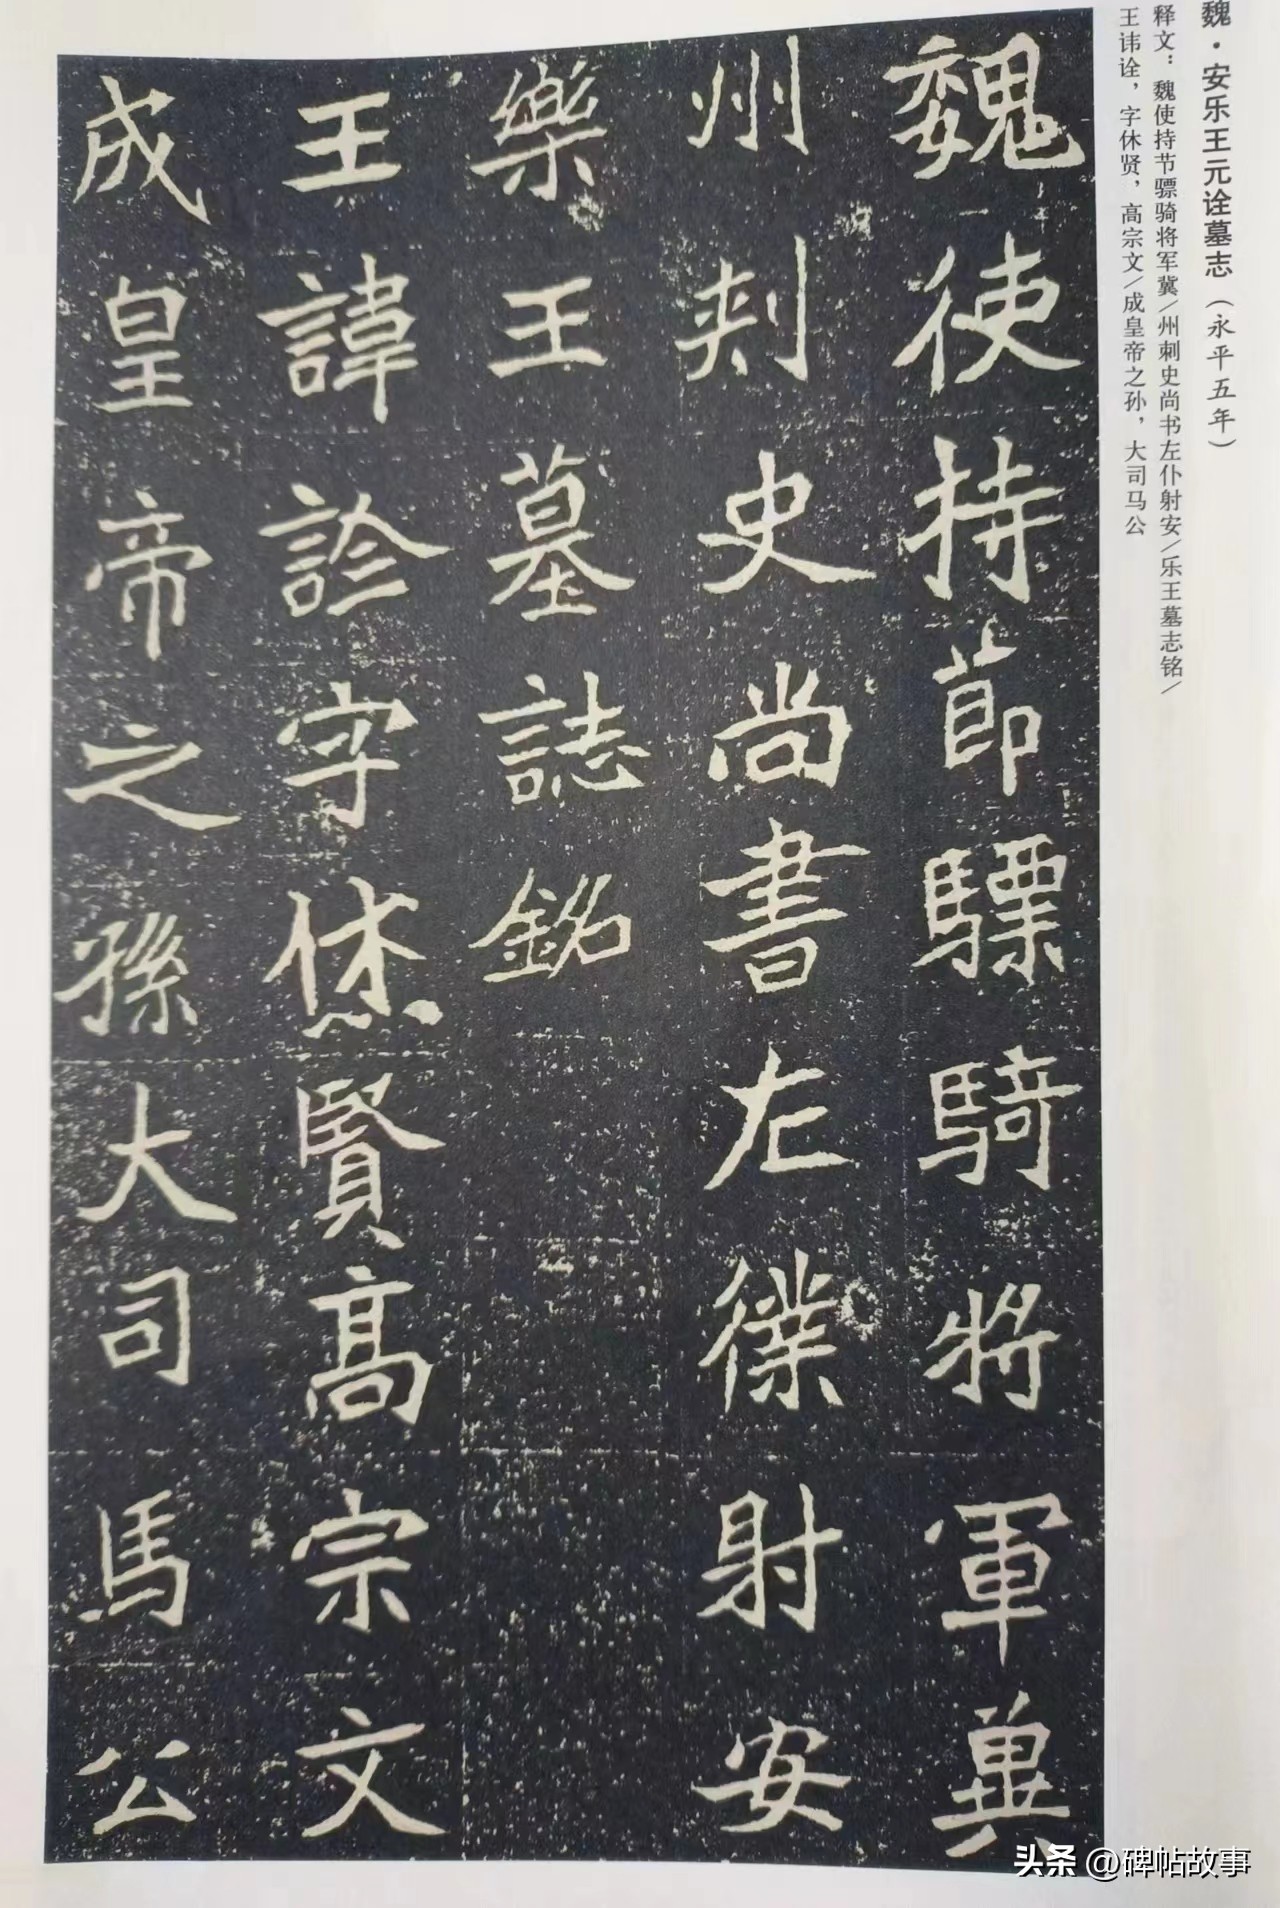 魏·安乐王元诠墓志（永平五年）
释文：魏使持节骠骑将军冀/州刺史尚书左仆射安/乐王墓志铭/
王讳诠，字休贤，高宗文/成皇帝之孙，大司马公
魏使持節驃騎將軍兾
州刾史尚書左僕射安
樂王墓誌銘
王諱詮字烋賢高宗文
成皇帝之孫大司馬公
头条 @碑帖故事